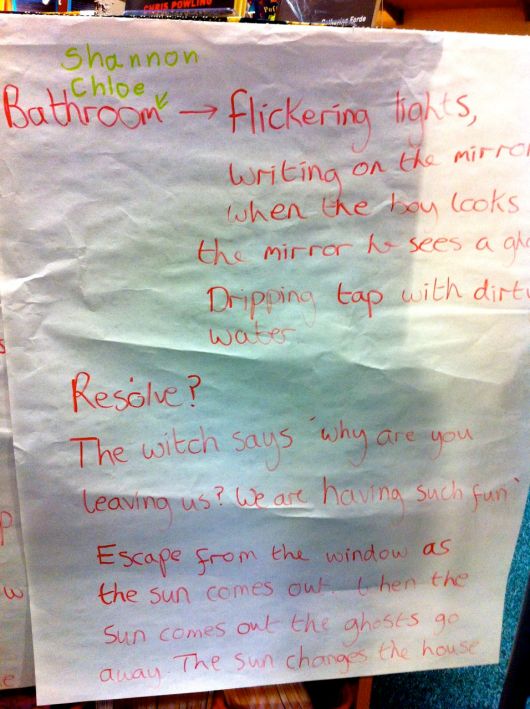 CHRIS POWLING
Catherine Forde
Shannon
Chloe
Bathroom → flickering lights,
writing on the mirro
when the boy looks
the mirror he sees a gho
Dripping tap with dirty
water
Resolve?
The witch says 'why are you
leaving us? We are having such fun'
Escape from the window as
the sun comes out. When the
Sun comes out the ghosts go
away. The sun changes the house